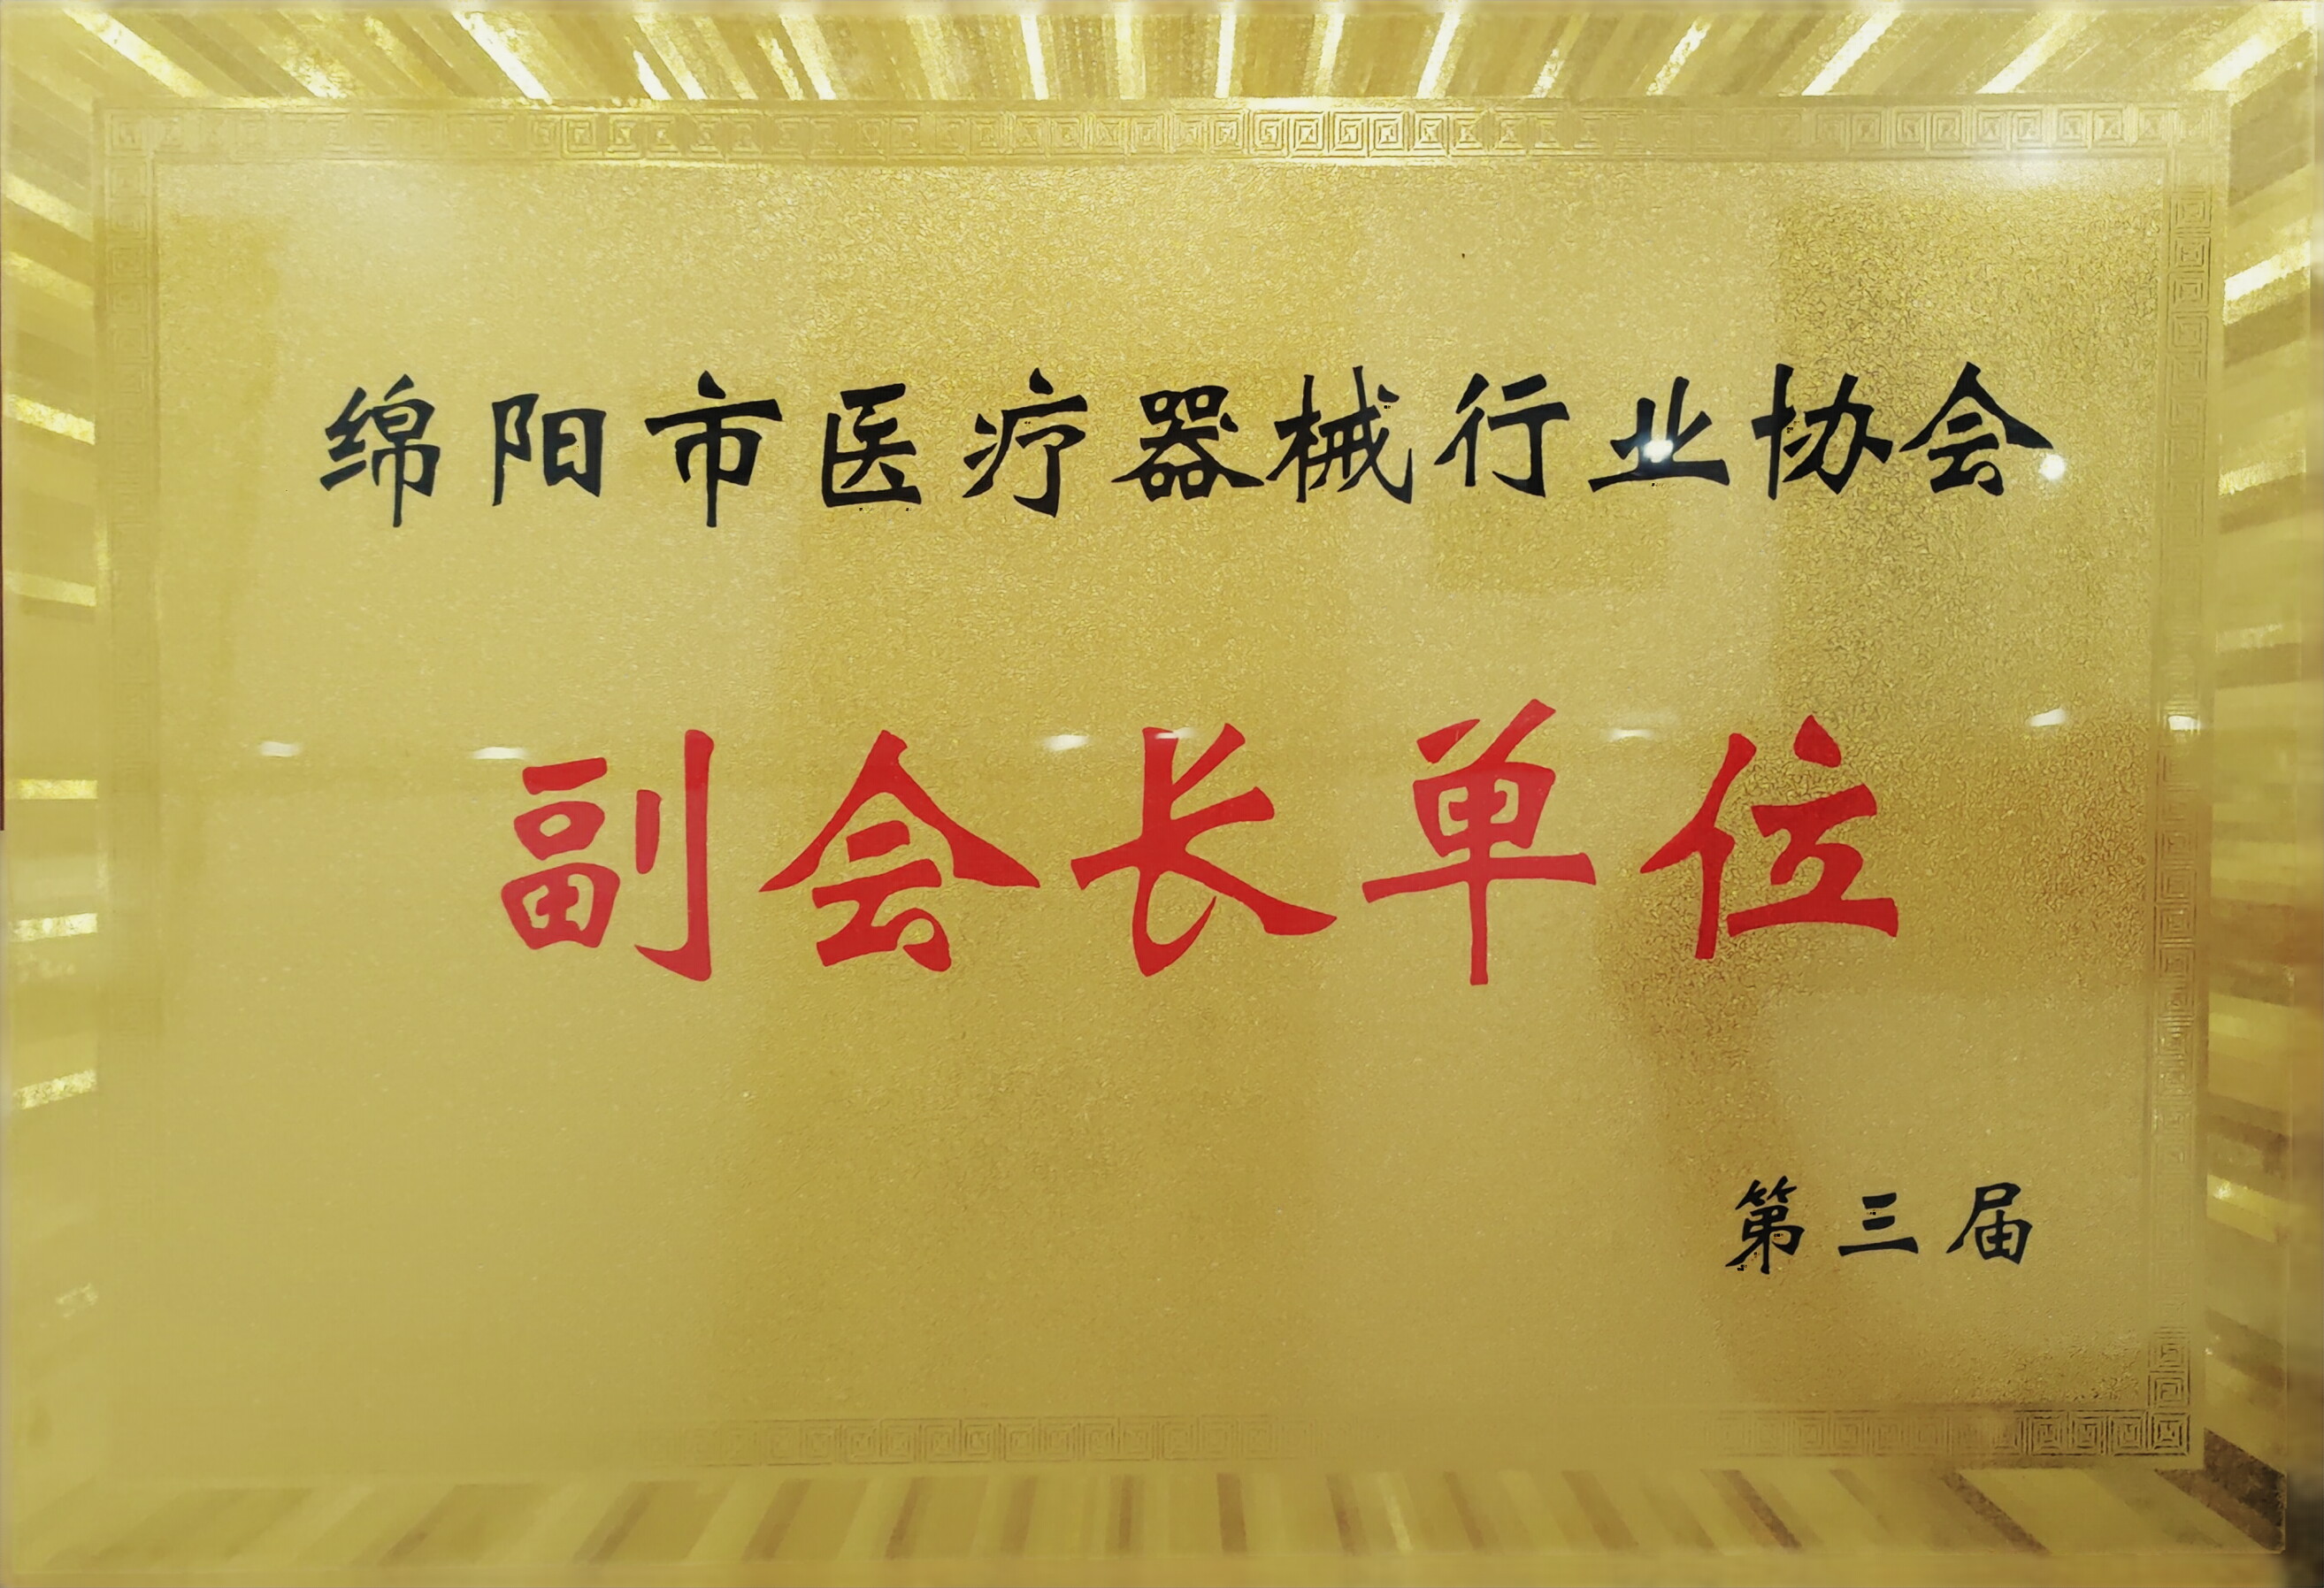 绵阳市医疗器械行业协会
副会长单位
第三届